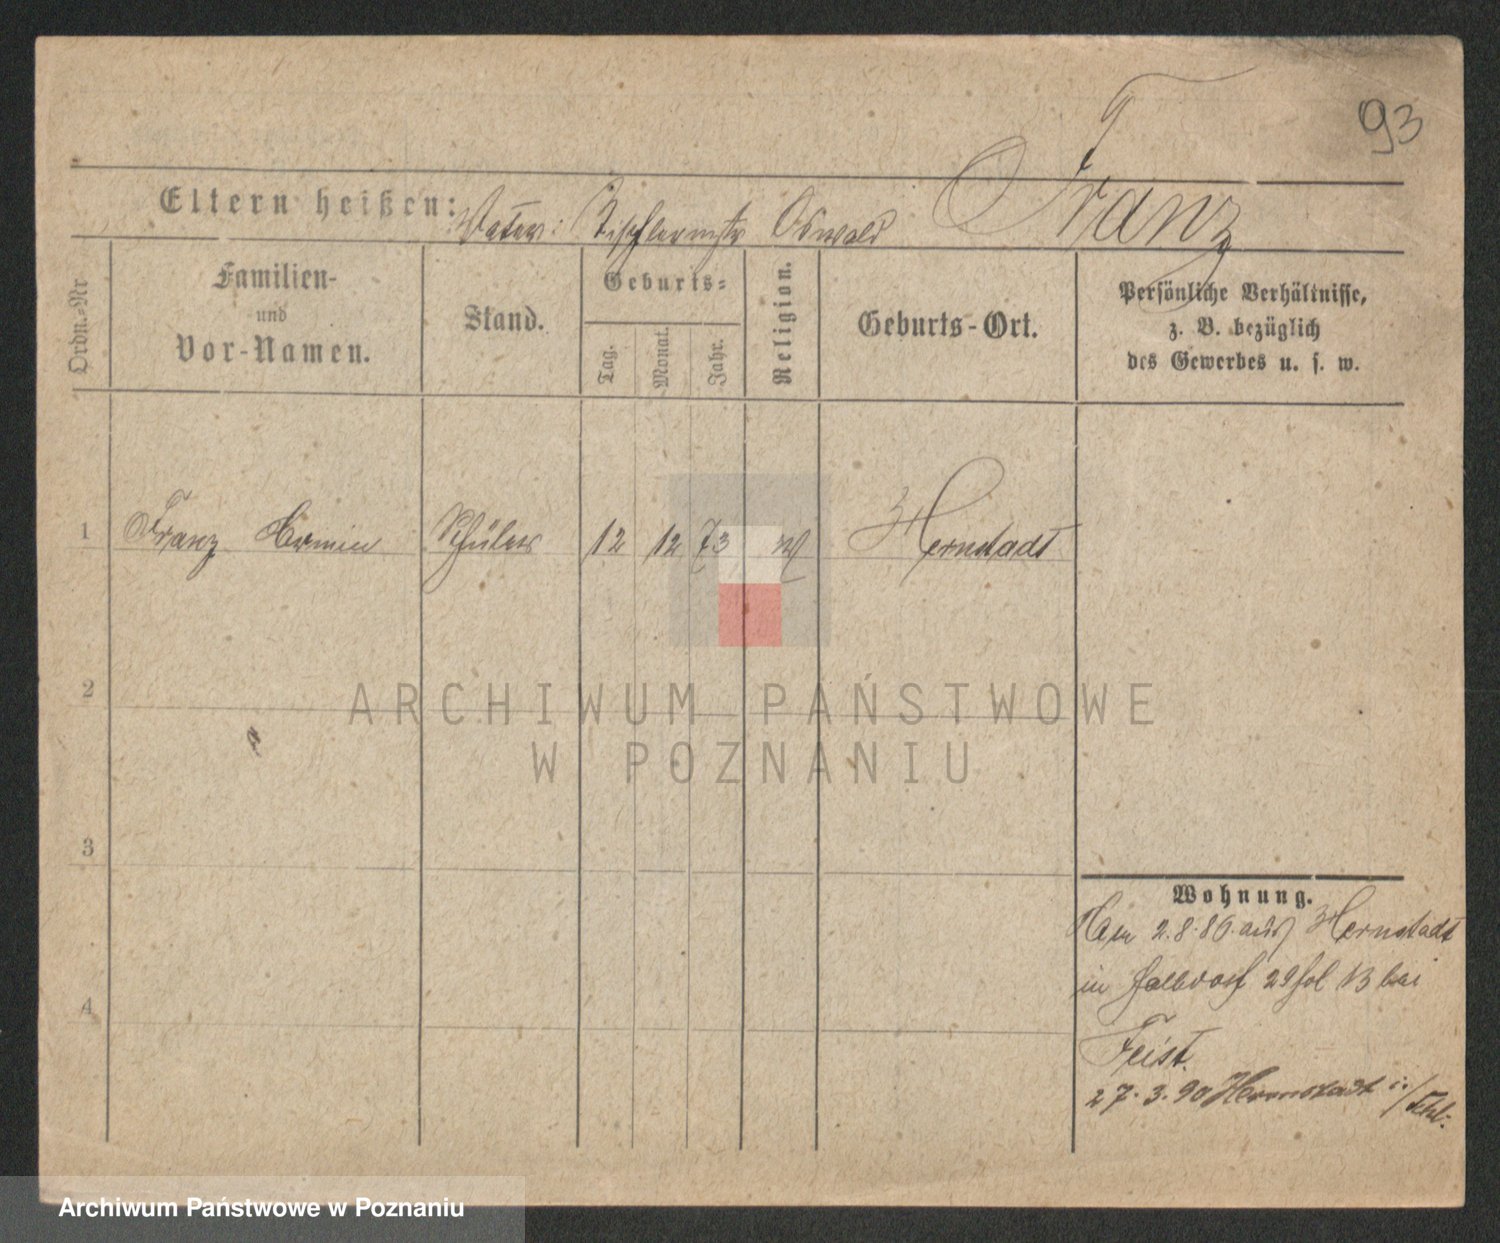 93
Franz
Eltern heißen: Vater: Tischlermstr Oswald
Ordn.-Nr
Familien-
und
Vor-Namen.
Stand.
Geburts-
Tag.
Monat.
Jahr.
Religion.
Geburts-Ort.
Persönliche Verhältnisse,
z. B. bezüglich
des Gewerbes u. s. w.
1 Franz Schüler 12 12 73 Hernstadt
2
3
4
ARCHIWUM PAŃSTWOWE
W POZNANIU
Wohnung.
2.8.86. aus Hernstadt
in 29 13 bei
Feist.
27.3.90 Herrnstadt i./Schl.
Archiwum Państwowe w Poznaniu